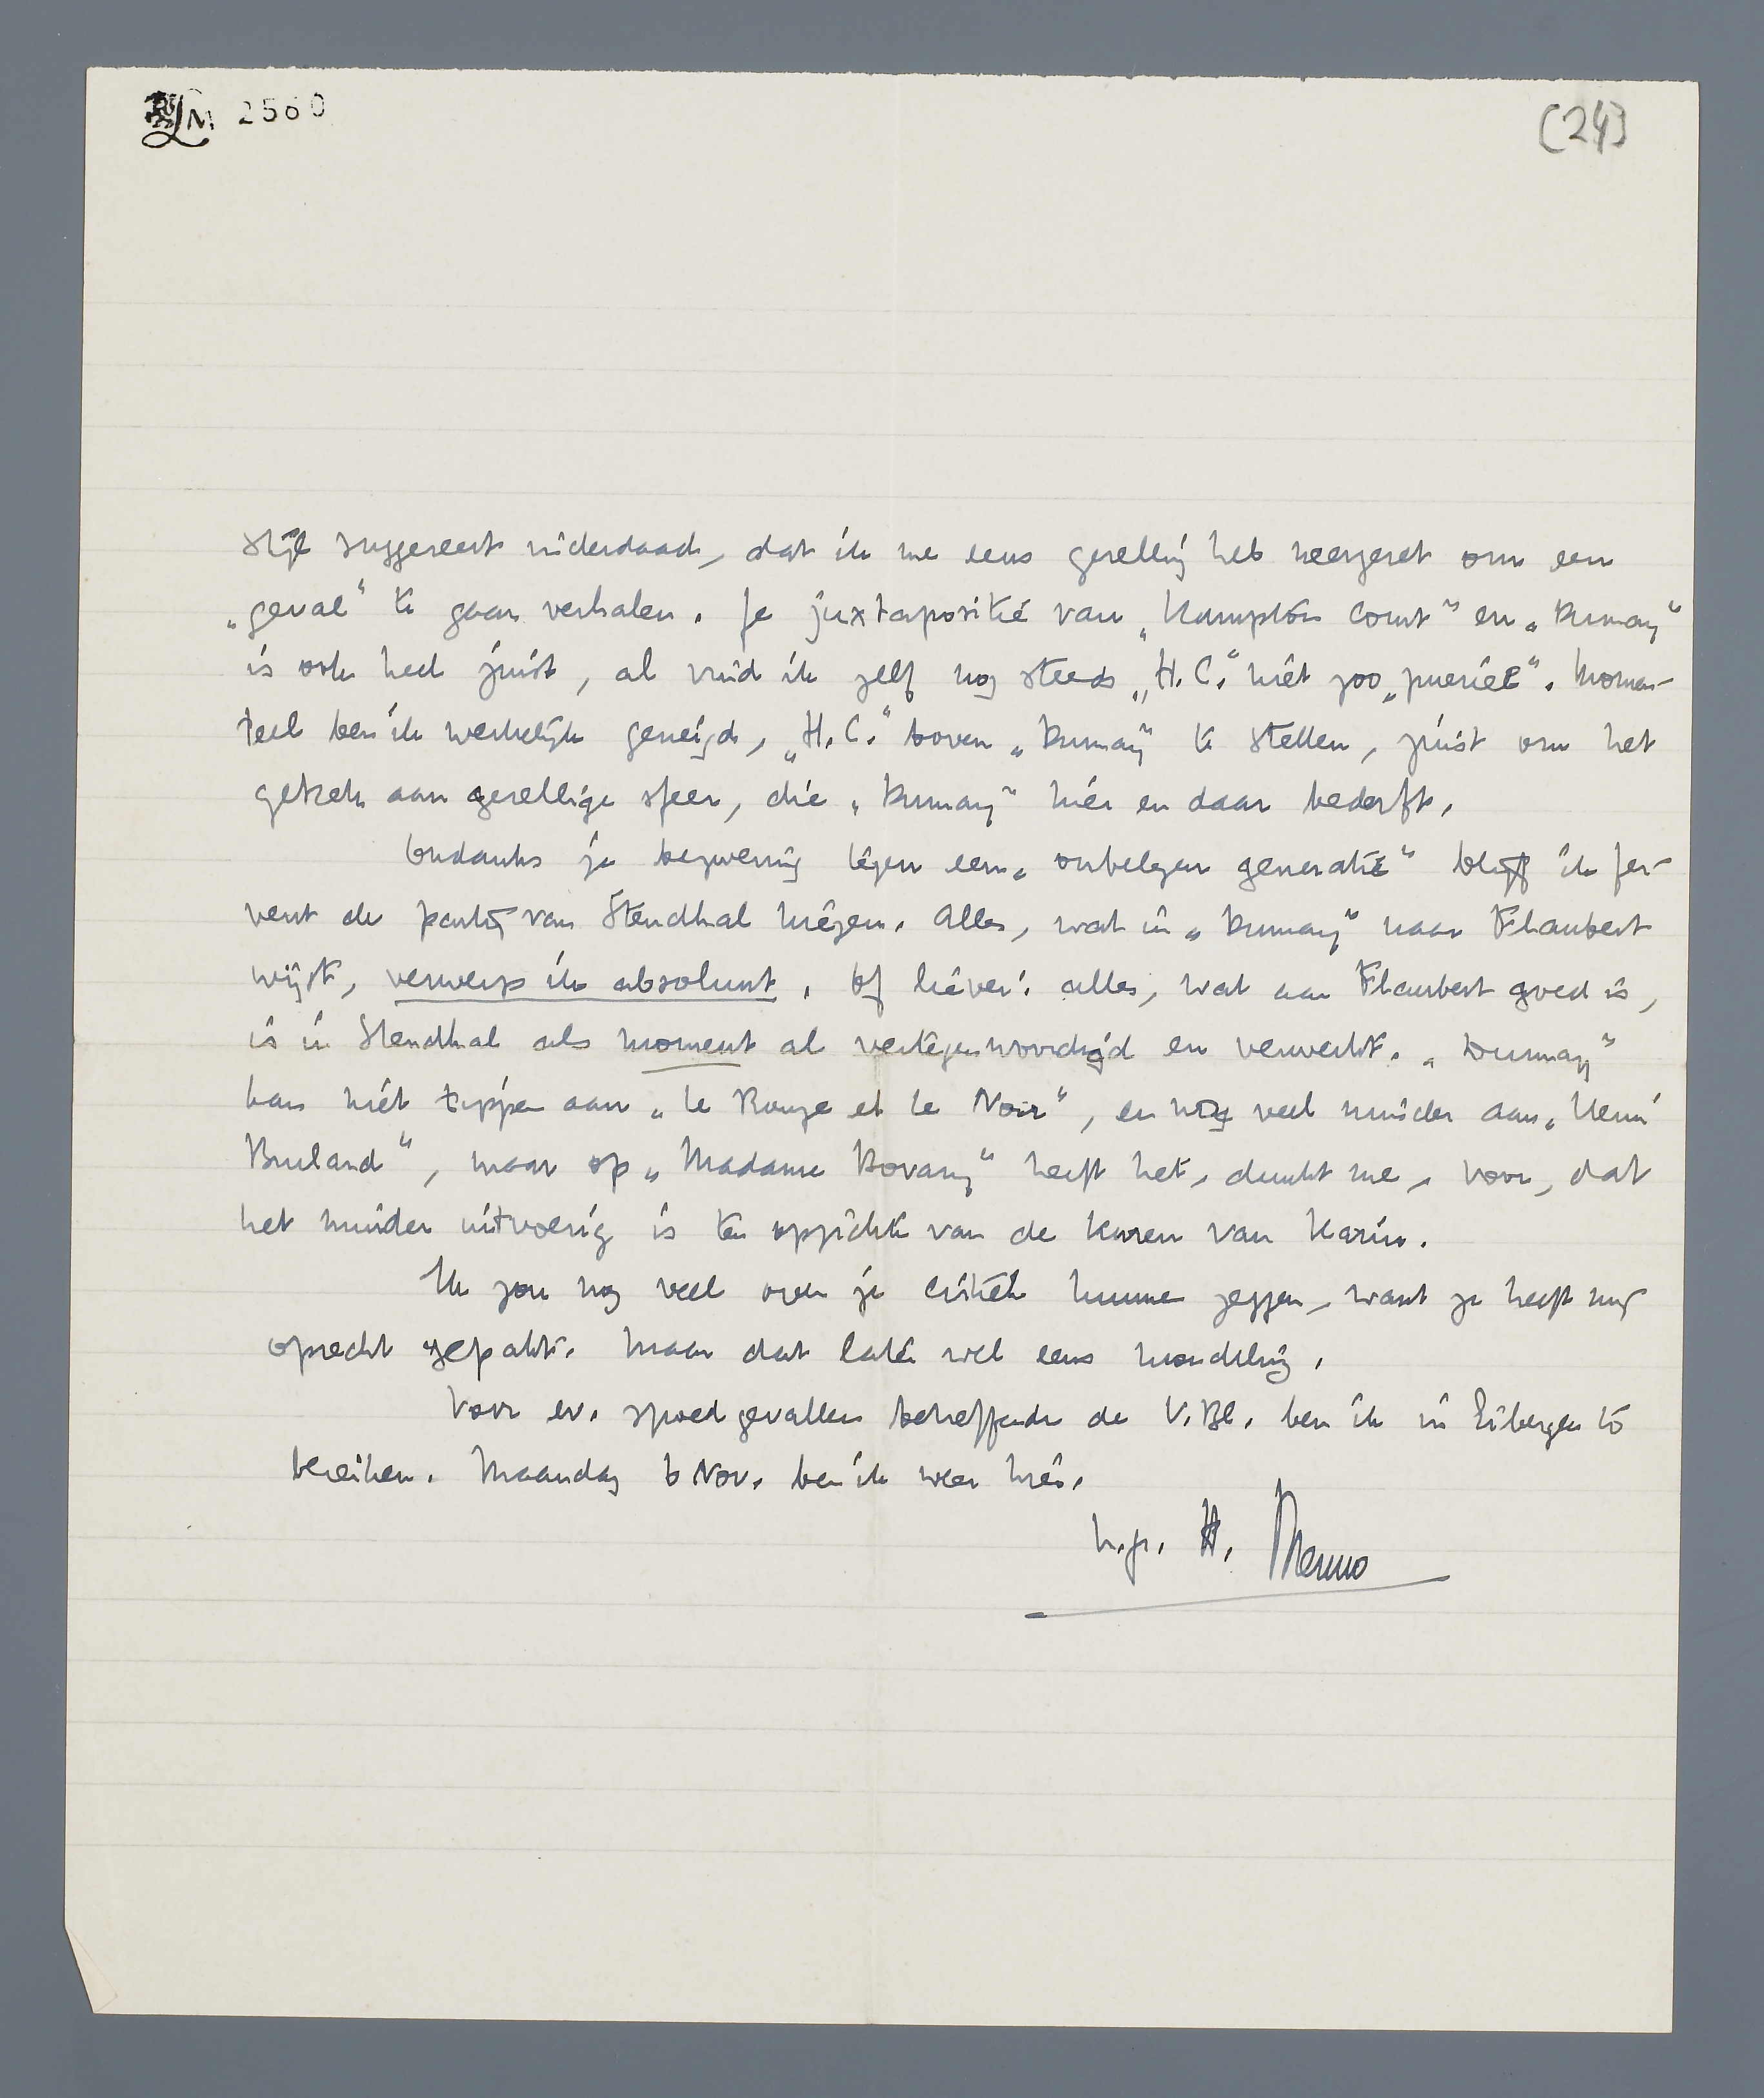 LM 2560
(24)
stijl suggereert inderdaad, dat ik me eens gezellig heb neergezet om een
„geval” te gaan verhalen. Je juxtapositie van „Hampton Court” en „Dumay”
is ook heel juist, al vind ik zelf nog steeds „H.C.” niet zoo „pueriel”. Momen-
teel ben ik werkelijk geneigd, „H.C.” boven „Dumay” te stellen, juist om het
gebrek aan gezellige sfeer, die „Dumay” hier en daar bederft.
Ondanks je bezwering tegen een „onbelezen generatie” blijf ik fer-
vent de partij van Stendhal kiezen. Alles, wat in „Dumay” naar Flaubert
wijst, verwerp ik absoluut. Of liever: alles, wat aan Flaubert goed is,
is in Stendhal als moment al vertegenwoordigd en verwerkt. „Dumay”
kan niet tippen aan „Le Rouge et le Noir”, en nog veel minder aan „Henri
Brulard”, maar op „Madame Bovary” heeft het, dunkt me, voor, dat
het minder uitvoerig is ten opzichte van de kuren van Karin.
Ik zou nog veel over je critiek kunnen zeggen, want ze heeft mij
oprecht gepakt. Maar dat later wel eens mondeling.
Voor ev. spoedgevallen betreffende de V.Bl. ben ik in Eibergen te
bereiken. Maandag 6 Nov. ben ik weer hier.
h.gr. tt. Menno